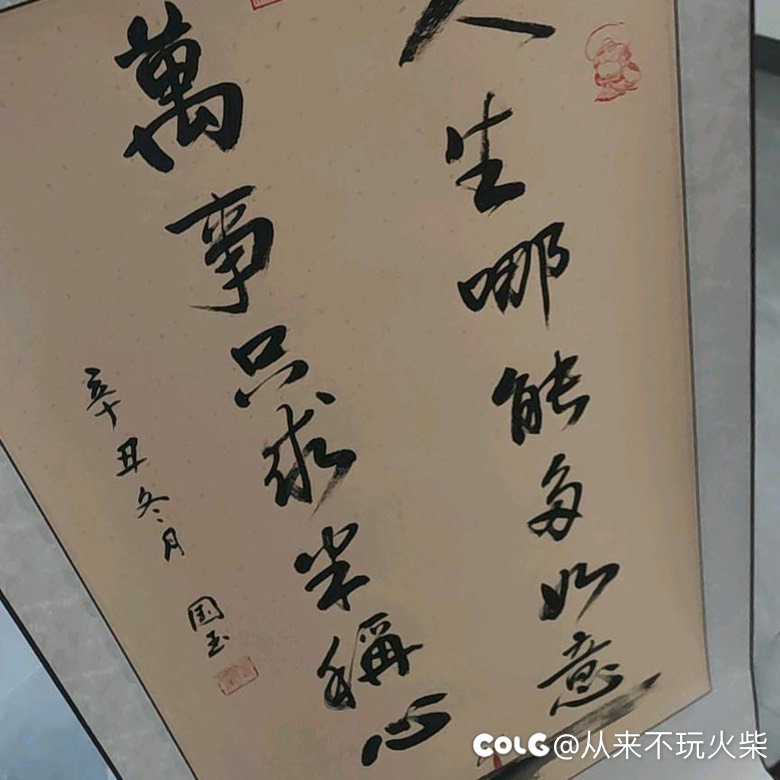 人生哪能多如意
萬事只求半稱心
辛丑冬月
国玉
COLG@从来不玩火柴